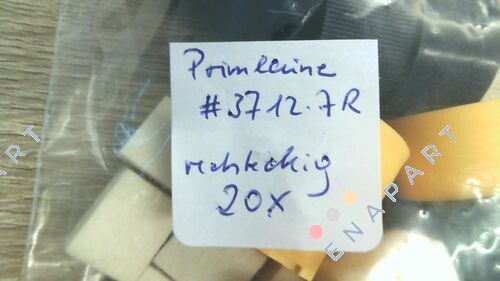 Primleine
#3712.7R
rechteckig
20x
ENAPART
ENAPART